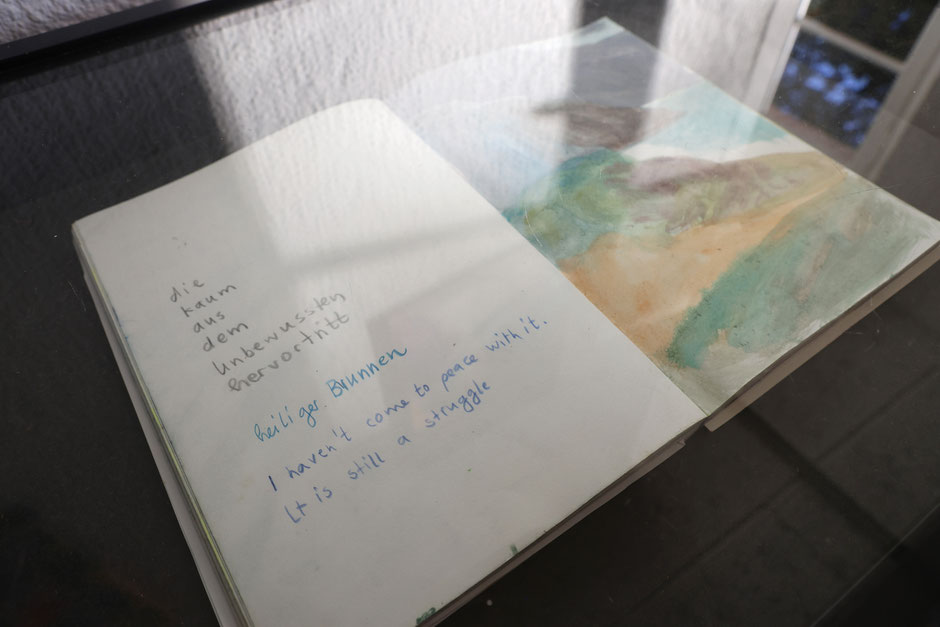 die
kaum
aus
dem
Unbewussten
hervortritt
heiliger Brunnen
I haven't come to peace with it.
It is still a struggle